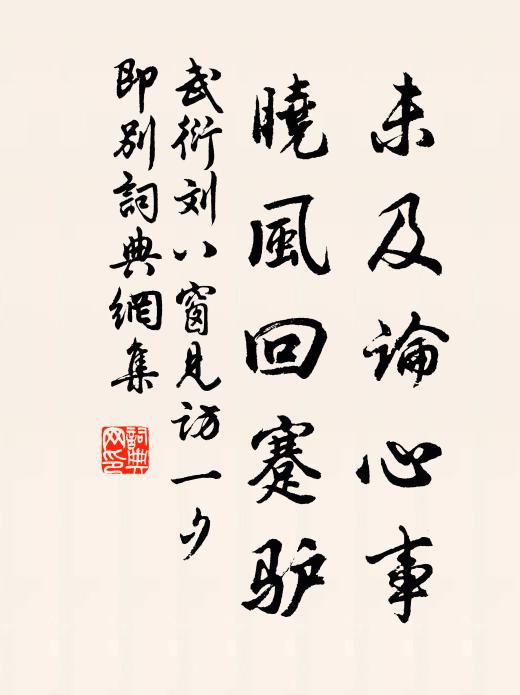 未及論心事
曉風回蹇驴
武衍刘八窗見访一夕
即别詞典網集
詞典网印